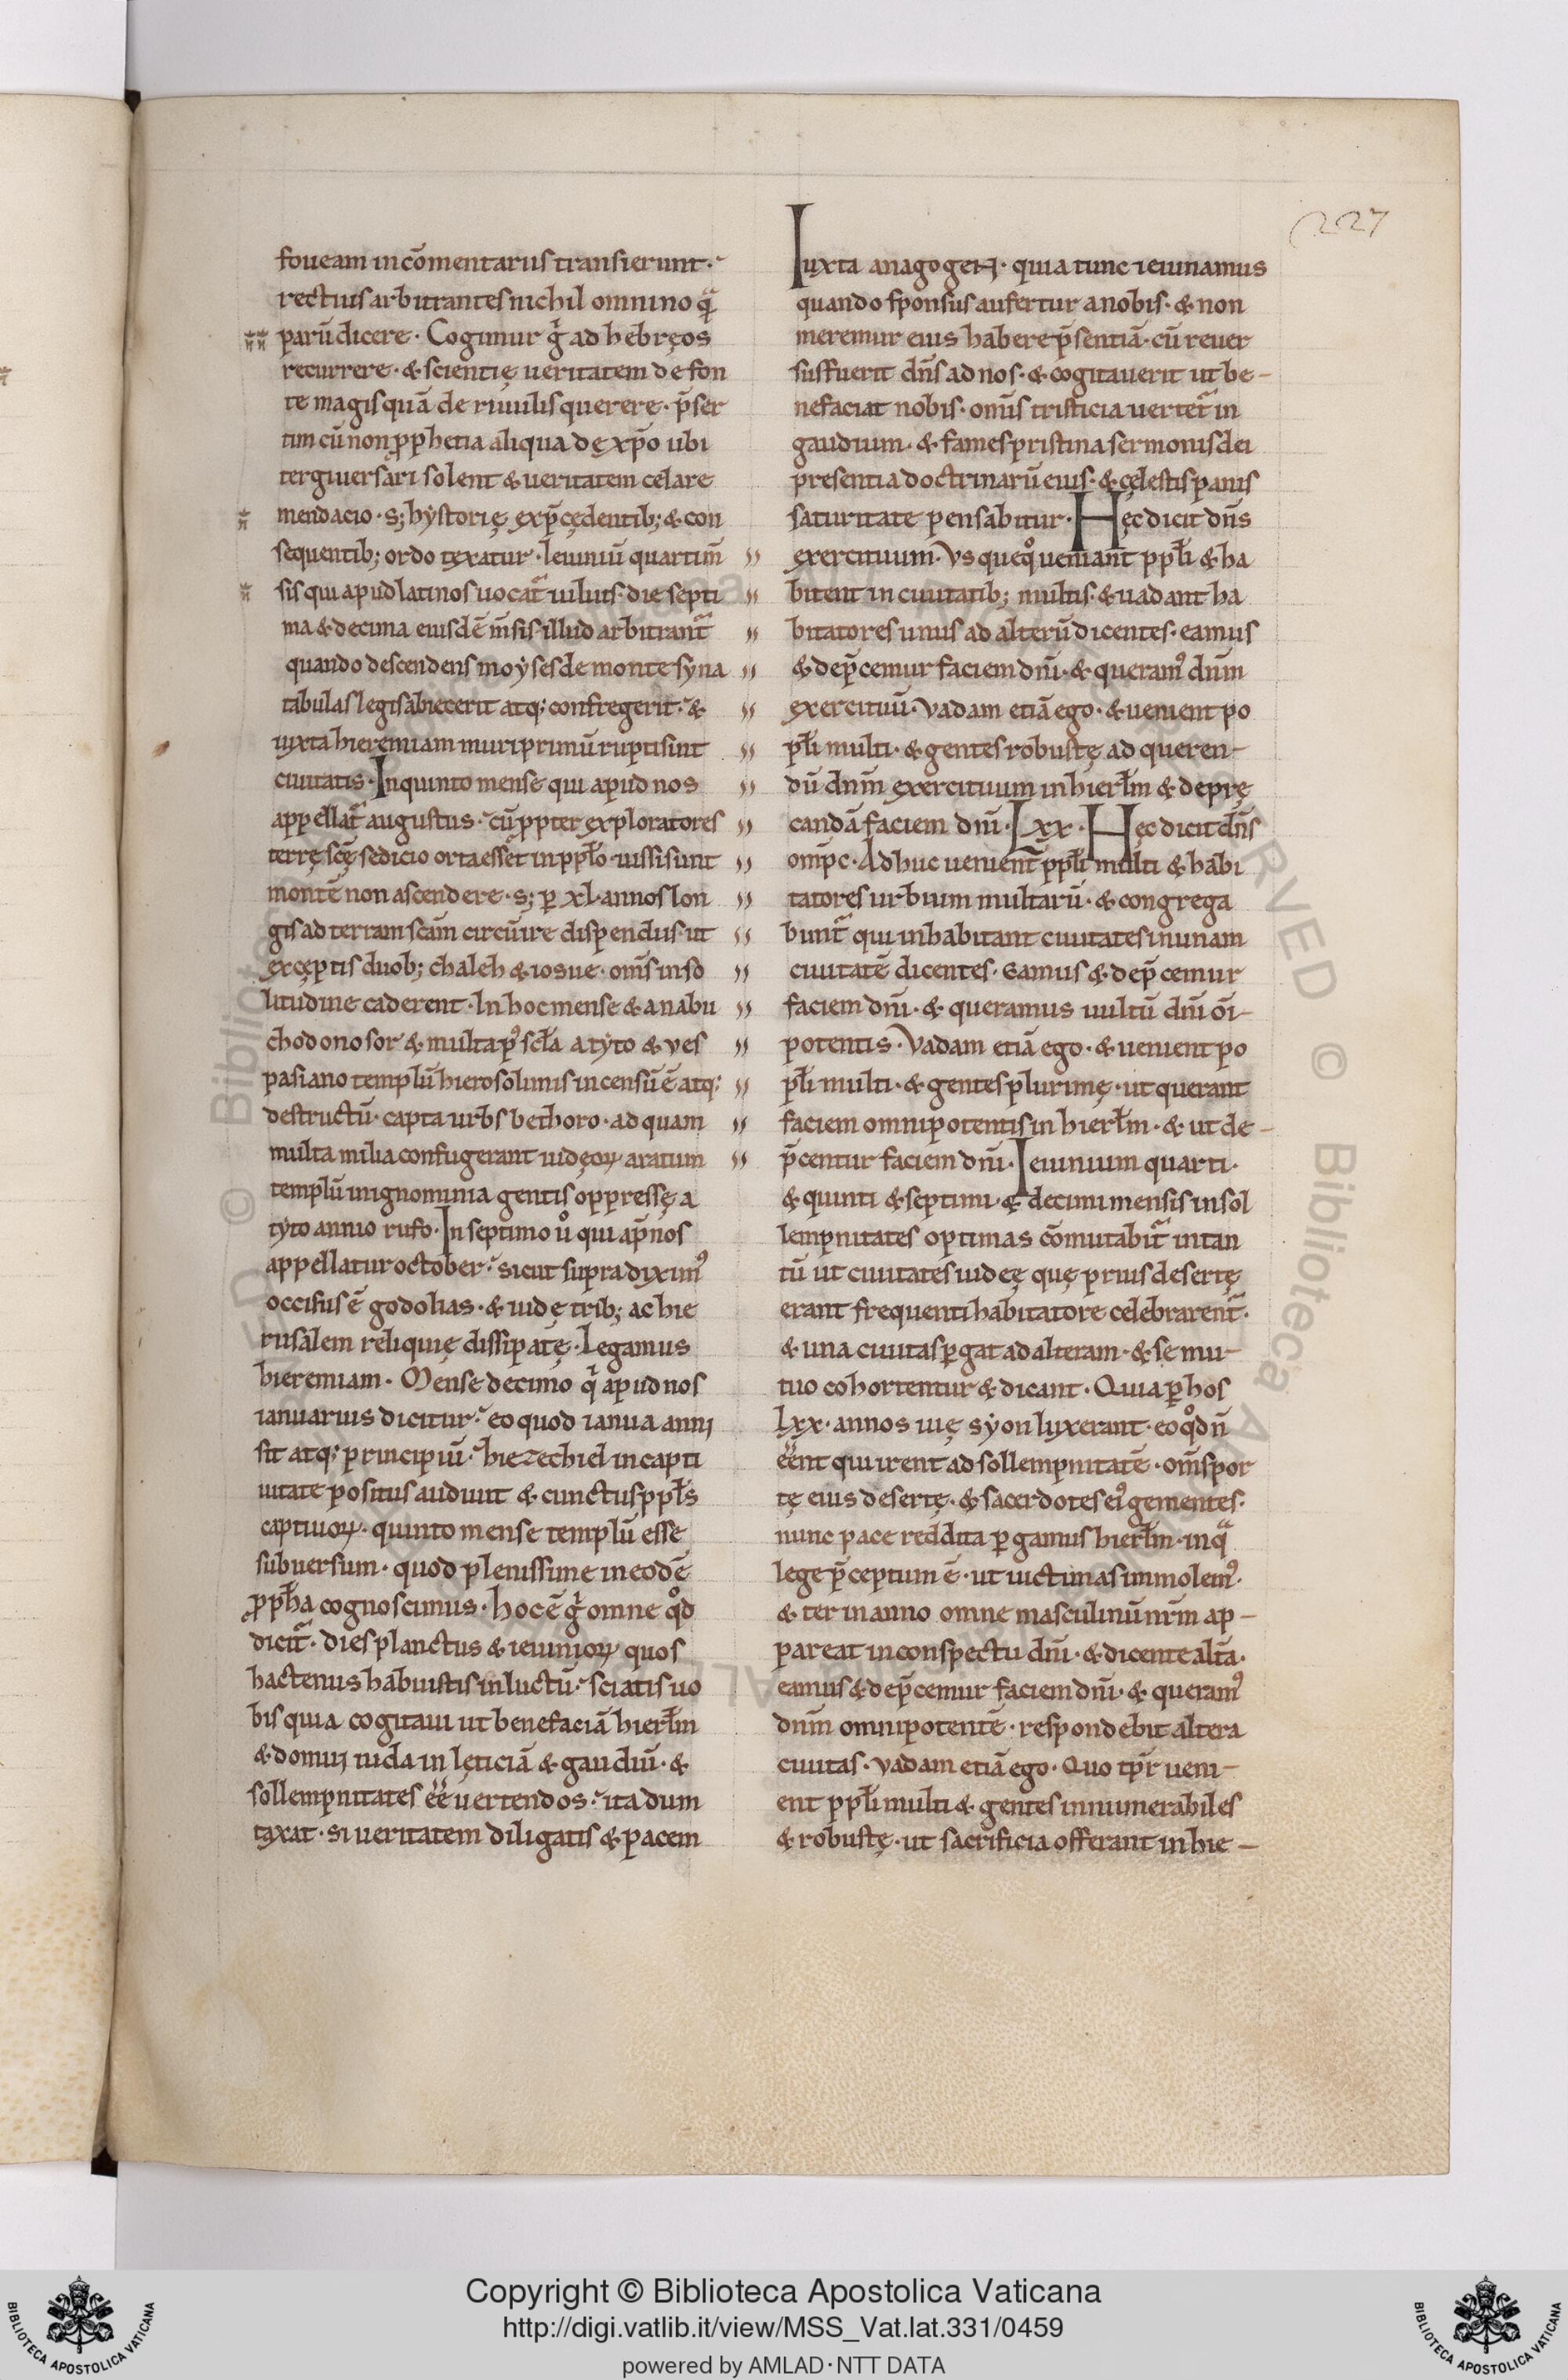 227
foueam in cōmentariis transierunt·
rectius arbitrantes nichil omnino q̄ͣ
parū dicere · Cogimur gͥ ad hebręos
recurrere · & scientię ueritatem de fon
te magis quā de riuulis querere · p̄ser
tim cū non ꝓphetia aliqua dę xp̄o ubi
tergiuersari solent & ueritatem celare
mendacio · s; hystorię ex p̄cędentib; & con
sequentib; ordo texatur · Ieiuniū quarti m̄
sis qui apud latinos uocat̄ iulius · die septi
ma & decima eiusdē m̄sis · illud arbitrant̄
quando descendens moyses de monte syna
tabulas legis abiecerit atq; confregerit · &
iuxta hieremiam muri primū rupti sint
ciuitatis · In quinto mense qui apud nos
appellat̄ augustus · cū ꝓpter exploratores
terrę scę̄ sedicio orta esset in ppł̄o · iussi sunt
montē non ascendere · s; ꝑ xl· annos lon
gis ad terram scām circūire dispendiis · ut
exceptis duob; chaleb & iosue · om̄s in so
litudine caderent · In hoc mense & a nabu
chodonosor & multa pꝰ scł̄a a tyto & ves
pasiano templū hierosolimis incensū ē atq;
destructū · capta urbs bethoro · ad quam
multa milia confugerant iudęoꝝ aratum
templū in ignominia gentis oppressę a
tyto annio rufo · In septimo u̾ qui ap̄ nos
appellatur october · sicut supra diximꝰ
occisus ē godolias · & iudę trib; ac hie
rusalem reliquię dissipatę · Legamus
hieremiam · Mense decimo qͥ apud nos
ianuarius dicitur · eo quod ianua anni
sit atq; principiū · hiezechiel in capti
uitate positus audiuit & cunctus ppł̄s
captiuoꝝ · quinto mense templū esse
subuersum · quod plenissime in eodē
ꝓpł̄ha cognoscimus · hoc ē gͥ omne qͦd
dicit̄ · dies planctus & ieiunioꝝ quos
hactenus habuistis in luctū · sciatis uo
bis quia cogitaui ut benefaciā hierł̄m
& domui iuda in lęticiā & gaudiū · &
sollempnitates ēē uertendos · ita dum
taxat · si ueritatem diligatis & pacem
Iuxta anagogeN · quia tunc ieiunamus
quando sponsus aufertur a nobis · & non
meremur eius habere p̄sentiā · cū reuer
sus fuerit dn̄s ad nos · & cogitauerit ut be-
nefaciat nobis · om̄s tristicia uertet̄ in
gaudium · & fames pristina sermonis dei
presentia doctrinarū eius · & cęlestis panis
saturitate pensabitur · Hęc dicit dn̄s
exercituum · Vsquequo ueniant ppł̄i & ha
bitent in ciuitatib; multis · & uadant ha
bitatores unius ad alterū dicentes · eamus
& dep̄cemur faciem dn̄i · & queramꝰ dn̄m
exercituū · Vadam etiā ego · & uenient po
pł̄i multi · & gentes robustę ad queren-
dū dn̄m exercituum in hierł̄m & deprę
candā faciem dn̄i · Lxx · Hęc dicit dn̄s
omp̄c · Adhuc uenient ppł̄i multi & habi
tatores urbium multarū · & congrega
bunt̄ qui inhabitant ciuitates in unam
ciuitatē dicentes · eamus & dep̄cemur
faciem dn̄i · & queramus uultū dn̄i oī-
potentis · Vadam etiā ego · & uenient po
pł̄i multi · & gentes plurimę · ut querant
faciem omnipotentis in hierł̄m · & ut de-
p̄centur faciem dn̄i · Ieiunium quarti ·
& quinti & septimi · & decimi mensis in sol
lempnitates optimas cōmutabit̄ in tan
tū ut ciuitates iudeę quę prius desertę
erant frequenti habitatore celebrarent̄ ·
& una ciuitas ꝑgat ad alteram · & se mu-
tuo cohortentur & dicant · Quia ꝑ hos
Lxx · annos uię syon luxerant · eo qͦd n̄
ēēnt qui irent ad sollempnitatē · om̄s por
tę eius desertę · & sacerdotes eiꝰ gementes ·
nunc pace reddita ꝑgamus hierł̄m · in qͣ
lege p̄ceptum ē · ut uictimas immolemꝰ ·
& ter in anno omne masculinū nr̄m ap-
pareat in conspectu dn̄i · & dicente alt̄a ·
eamus & dep̄cemur faciem dn̄i · & queramꝰ
dn̄m omnipotentē · respondebit altera
ciuitas · Vadam etiā ego · Quo tp̄r ueni-
ent ppł̄i multi & gentes innumerabiles
& robustę · ut sacrificia offerant in hie-
Copyright © Biblioteca Apostolica Vaticana
http://digi.vatlib.it/view/MSS_Vat.lat.331/0459
powered by AMLAD·NTT DATA
BIBLIOTECA APOSTOLICA VATICANA
BIBLIOTECA APOSTOLICA VATICANA